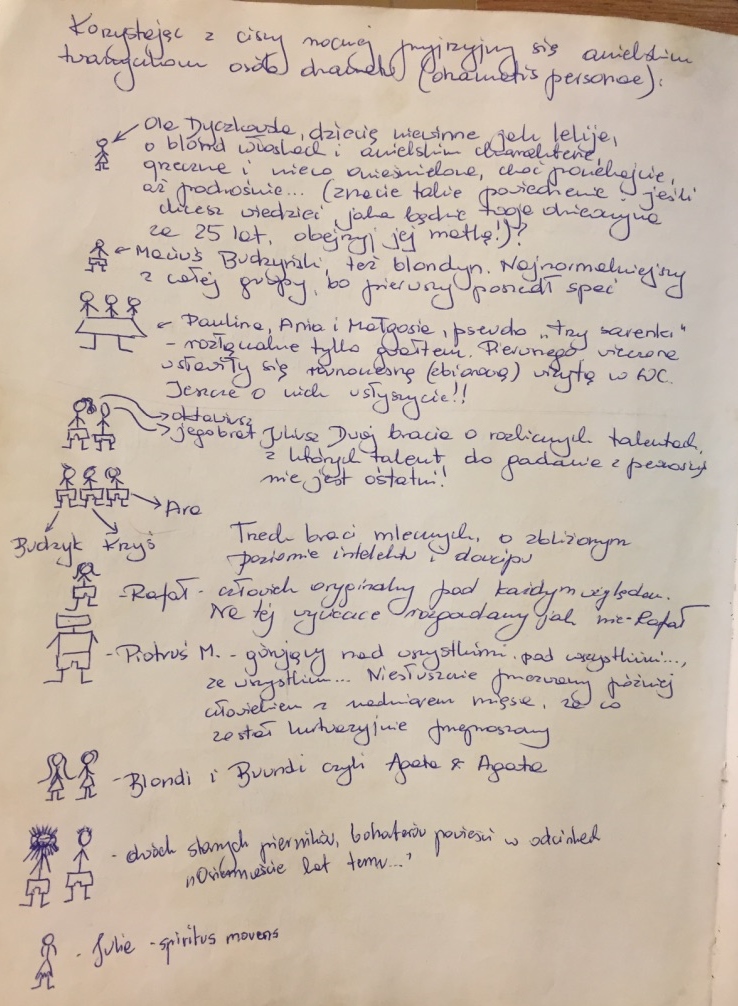 Korzystając z ciszy nocnej przyjrzyjmy się anielskim
twarzyczkom osób dramatu (dramatis personae):
Ola Dyczkowska, dziecię niewinne jak lelija,
o blond włoskach i anielskim charakterze,
grzeczne i nieco onieśmielone, choć poczekajcie,
aż podrośnie... (znacie takie powiedzenie - jeśli
chcesz wiedzieć jaka będzie twoja dziewczyna
za 25 lat, obejrzyj jej matkę!)?
Maciuś Budzyński, też blondyn. Najnormalniejszy
z całej grupy, bo pierwszy poszedł spać
Paulina, Ania i Małgosia, pseudo "trzy sarenki"
- rozłączalne tylko gwałtem. Pierwszego wieczora
ustawiły się równocześnie (zbiorową) wizytą w WC.
Jeszcze o nich usłyszycie!!
Oktawiusz
jego brat Juliusz Dwaj bracia o rozlicznych talentach,
z których talent do gadania z pewnością
nie jest ostatni!
Ara
Budzyk Krzyś
Trzech braci mlecznych, o zbliżonym
poziomie intelektu i dowcipu
- Rafał - człowiek oryginalny pod każdym względem.
Na tej wycieczce rozgadany jak nie-Rafał
- Piotruś M. - górujący nad wszystkimi, pod wszystkimi...,
ze wszystkim... Niesłusznie przezwany później
człowiekiem z nadmiarem mięsa, za co
został kurtuazyjnie przeproszony
- Blondi i Brundi czyli Agata & Agata
- dwóch starych pierników, bohaterów powieści w odcinkach
"Osiemnaście lat temu..."
- Julia - spiritus movens